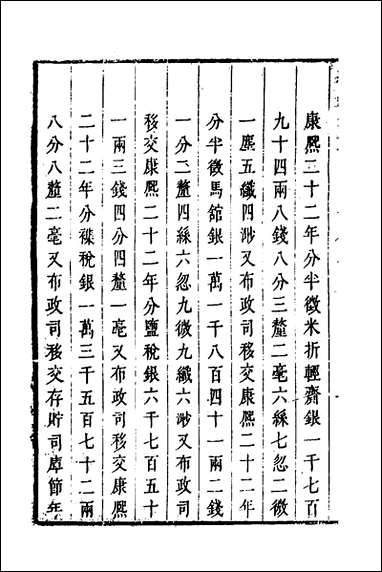 康熙二十二年分半徵米折輕齎銀一千七百
九十四兩八錢八分三釐二毫六絲七忽二微
一塵五纖四渺又布政司移交康熙二十二年
分半徵馬舘銀一萬一千八百四十一兩二錢
一分二釐四絲六忽九微九纖六渺又布政司
移交康熙二十二年分鹽稅銀六千七百五十
一兩三錢四分四釐一毫又布政司移交康熙
二十二年分襍稅銀一萬三千五百七十二兩
八分八釐二毫又布政司移交存貯司庫節年